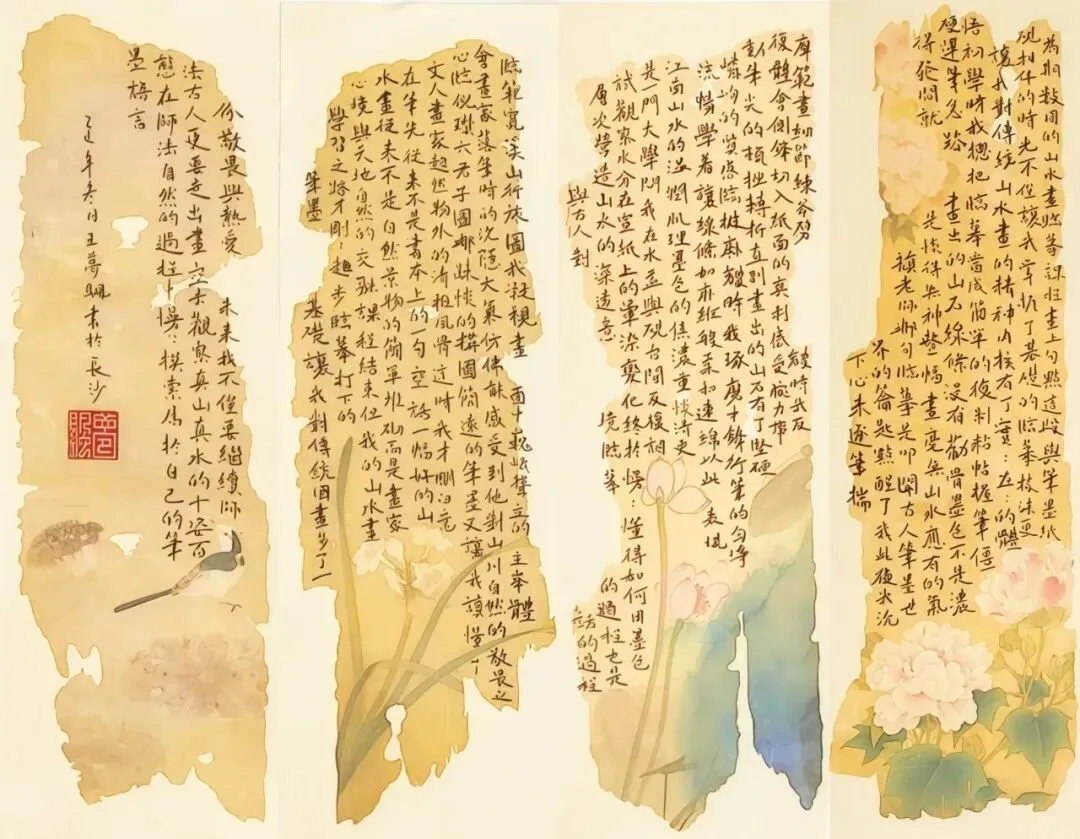 為期數周的山水畫臨摹課程畫上句點這段與筆墨紙
硯相伴的時光不僅讓我掌握了基礎的臨摹技法更
讓我對傳統山水畫的精神內核有了實在的體
悟初學時我總把臨摹當成簡單的復制粘帖握筆僵
硬運筆急躁 畫出的山石線條沒有勁骨墨色不是濃
得發悶就 是淡得失神整幅畫毫無山水應有的氣
韻老師那句臨摹是叩開古人筆墨世
界的鑰匙點醒了我此後我沉
下心來逐筆揣
摩範畫細節練斧劈 皴時我反
復體會側鋒切入紙面的爽利感受腕力帶
動筆尖的頓挫轉折直到畫出的山石有了堅硬
嶙峋的質感臨披麻皴時我琢磨中鋒行筆的勻淨
流暢學着讓線條如麻組般柔和連綿以此 表現
江南山水的溫潤肌理墨色的焦濃重淡清更
是一門大學問我在水盂與硯台間反複調
試觀察水分在宣紙上的暈染變化終於慢慢懂得如何用墨色
層次營造山水的深遠意 境臨摹 的過程也是
與古人對 話的過程
臨範寬溪山行旅圖我凝視畫 面中巍峨聳立的 主峰體
會畫家落筆時的沉穩大氣仿佛能感受到他對山川自然的敬畏之
心臨倪瓚六君子圖那疏淡的構圖簡遠的筆墨又讓我讀懂了
文人畫家超然物外的清粗風骨這時我才明白意
在筆先從來不是書本上的一句空話一幅好的山
水畫從來不是自然景物的簡單堆砌而是畫家
心境與天地自然的交融課程結束但我的山水畫
學習之路才剛剛起步臨摹打下的
筆墨 基礎讓我對傳統國畫多了一
份敬畏與熱愛 未來我不僅要繼續師
法古人更要走出畫室去觀察真山真水的千姿百
態在師法自然的過程中慢慢摸索屬於自己的筆
墨語言
年冬日王夢珮書於長沙